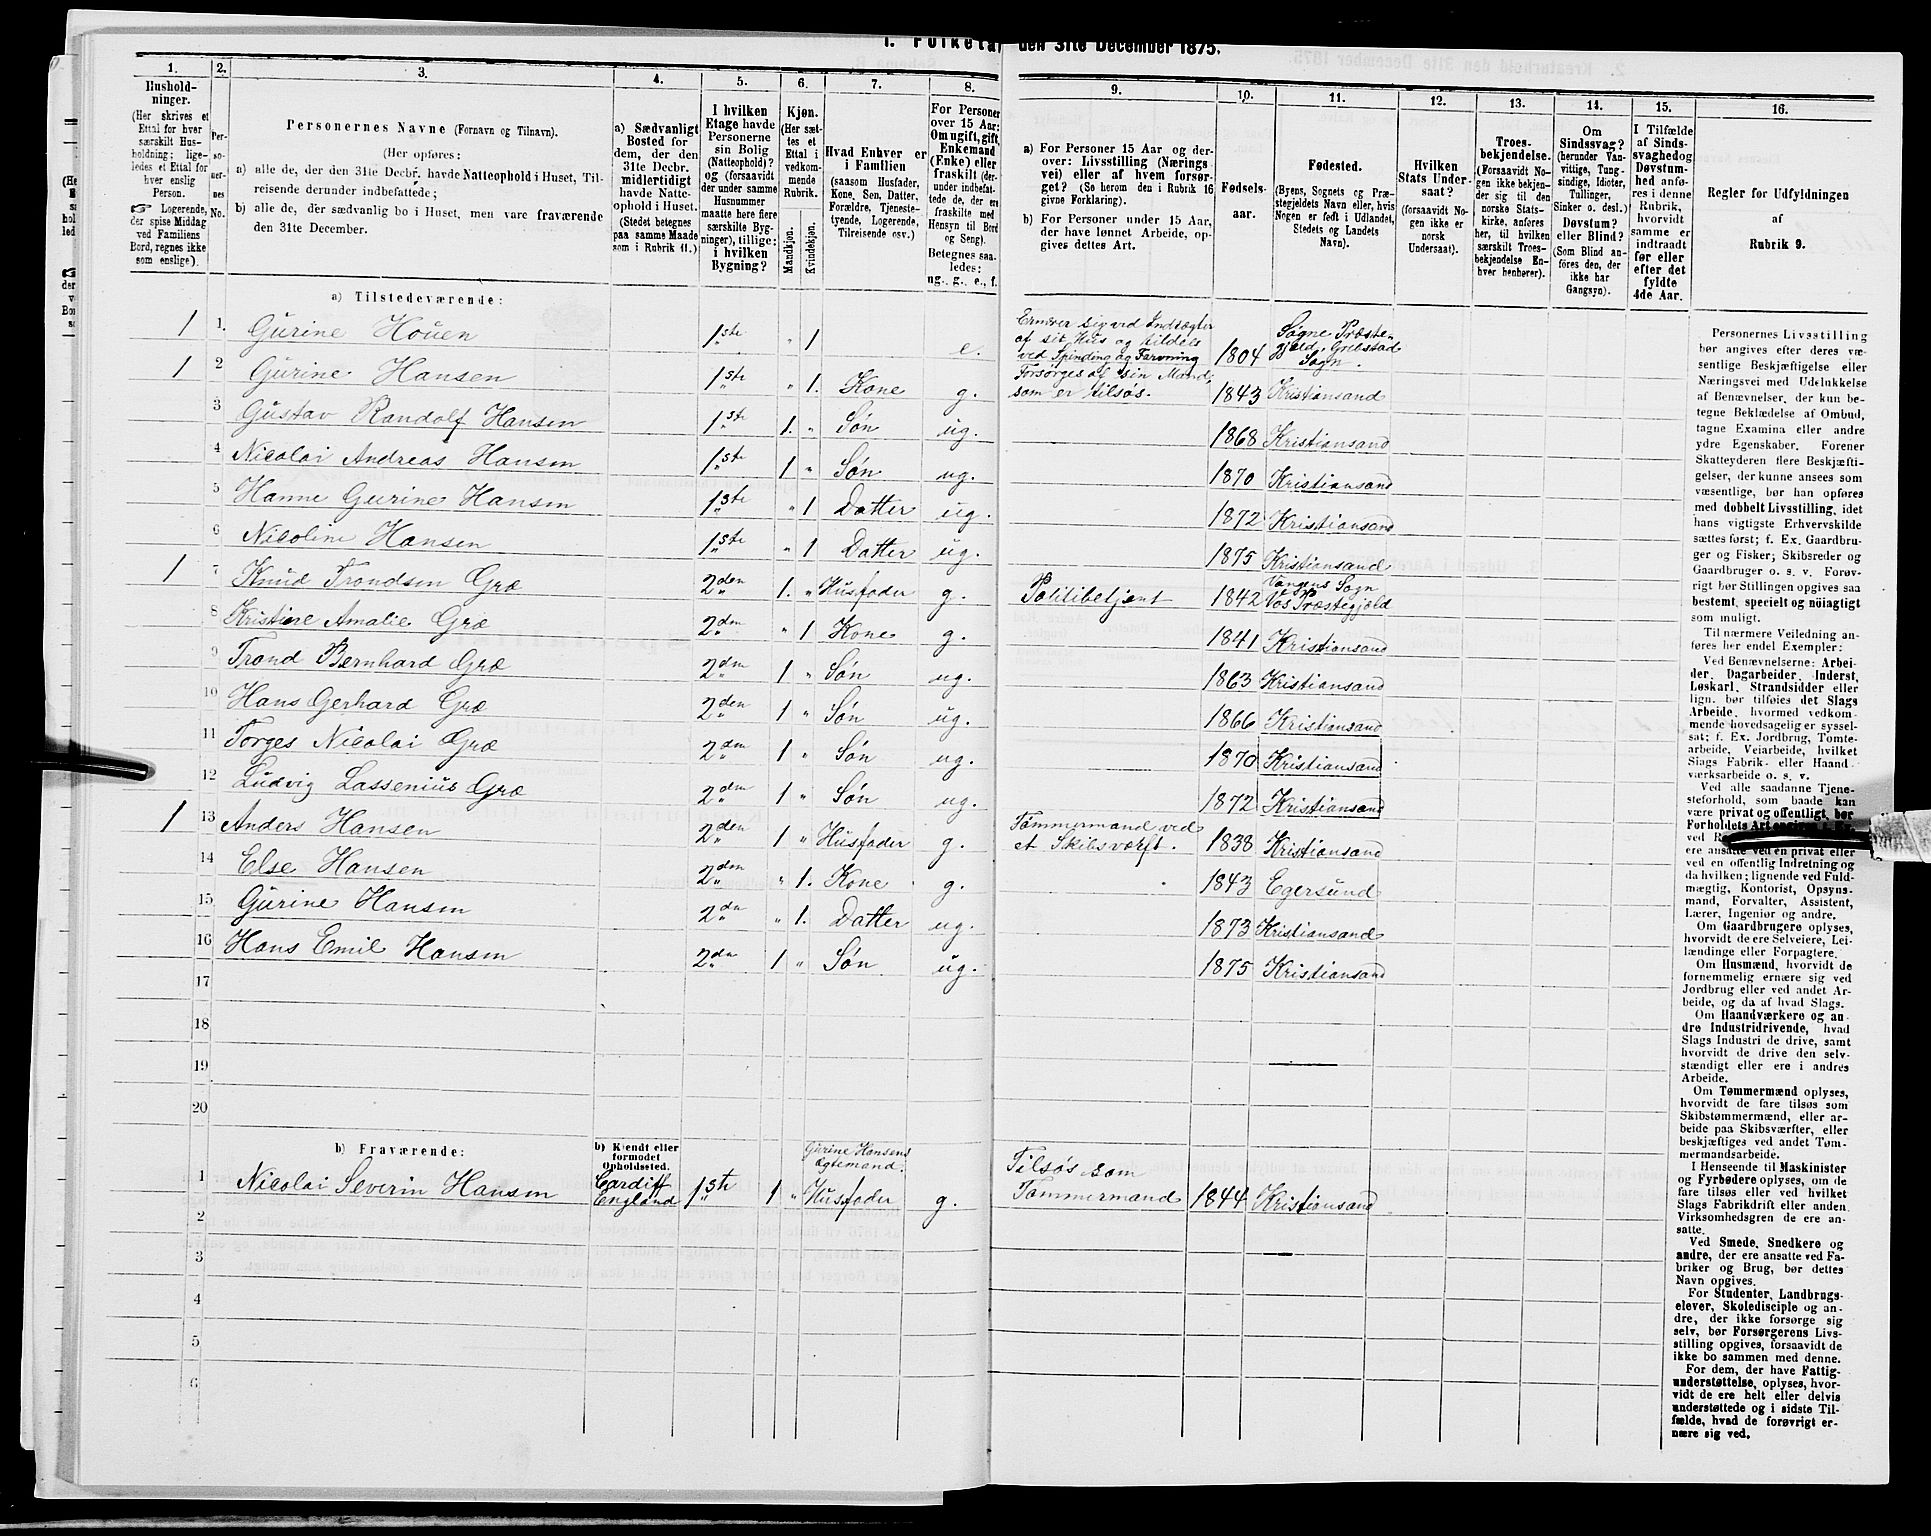 1. Folketal den 31te December 1875.
1. 2. 3. 4. 5. 6. 7. 8. 9. 10. 11. 12. 13. 14. 15. 16.
Hushold-
ninger.
(Her skrives et
Ettal for hver
særskilt Hus-
holdning; lige-
ledes et Ettal for
hver enslig
Person.
☞ Logerende,
der spise Middag
ved Familiens
Bord, regnes ikke
som enslige).
Per-
so-
ner-
nes
No.
Personernes Navne (Fornavn og Tilnavn).
(Her opføres:
a) alle de, der den 31te Decbr. havde Natteophold i Huset, Til-
reisende derunder indbefattede;
b) alle de, der sædvanlig bo i Huset, men vare fraværende
den 31te December.
a) Sædvanligt
Bosted for
dem, der den
31te Decbr.
midlertidigt
havde Natte-
ophold i Huset.
(Stedet betegnes
paa samme Maade
som i Rubrik 11.)
I hvilken
Etage havde
Personerne
sin Bolig
(Natteophold)?
og (forsaavidt
der under samme
Husnummer
maatte høre flere
særskilte Byg-
ninger), tillige:
i hvilken
Bygning?
Kjøn.
(Her sæt-
tes et
Ettal i
vedkom-
mende
Rubrik.
Mandkjøn.
Kvindekjøn.
Hvad Enhver er
i Familien
(saasom Husfader,
Kone, Søn, Datter,
Forældre, Tjeneste-
tyende, Logerende,
Tilreisende osv.)
For Personer
over 15 Aar:
Om ugift, gift,
Enkemand
(Enke) eller
fraskilt (der-
under indbefat-
tede de, der ere
fraskilte med
Hensyn til Bord
og Seng).
Betegnes saa-
ledes:
ug., g., e., f.
a) For Personer 15 Aar og der-
over: Livsstilling (Nærings
vei) eller af hvem forsør-
get? (Se herom den i Rubrik 16
givne Forklaring).
b) For Personer under 15 Aar,
der have lønnet Arbeide, op-
gives dettes Art.
Fødsels-
aar.
Fødested.
(Byens, Sognets og Præ-
stegjeldets Navn eller, hvis
Nogen er født i Udlandet,
Stedets og Landets
Navn).
Hvilken
Stats Under-
saat?
(forsaavidt No-
gen ikke er
norsk
Undersaat).
Troes-
bekjendelse.
(Forsaavidt No-
gen ikke bekjen-
der sig til den
norske Stats-
kirke, anføres
her, til hvilken
særskilt Troes-
bekjendelse En-
hver henhører).
Om
Sindssvag?
(herunder Van-
vittige, Tung-
sindige, Idioter,
Tullinger,
Sinker o. desl.)
Døvstum?
eller Blind?
(Som Blind an-
føres den, der
ikke har
Gangsyn).
I Tilfælde
af Sinds-
svaghed og
Døvstum-
hed anfø-
res i denne
Rubrik,
hvorvidt
samme er
indtraadt
før eller
efter det
fyldte
4de Aar.
Regler for Udfyldningen
af
Rubrik 9.
a) Tilstedeværende:
1 1. Gurine Houen 1ste " 1 e. Ernærer sig ved Indtægter af sit Hus og tildels ved Spinding og Farvning 1804 Søgne Præstegjeld, Greipstad Sogn.
1 2 Gurine Hansen 1ste " 1. Kone g. Forsørges af sin Mand, som er tilsøs. 1843 Kristiansand
3 Gustav Randolf Hansen 1ste 1. " Søn ug. 1868 Kristiansand
4 Nicolai Andreas Hansen 1ste 1 " Søn ug. 1870 Kristiansand
5 Hanne Gurine Hansen 1ste " 1 Datter ug. 1872 Kristiansand
6 Nicoline Hansen 1ste " 1 Datter ug. 1875 Kristiansand
1 7 Knud Trondsen Græ 2den 1. " Husfader g. Politibetjent 1842 Vangens Sogn Vos Præstegjeld
8 Kristine Amalie Græ 2den " 1 Kone g. 1841 Kristiansand
9 Trond Bernhard Græ 2den 1 " Søn ug. 1863 Kristiansand
10 Hans Gerhard Græ 2den 1 " Søn ug. 1866 Kristiansand
11 Torges Nicolai Græ 2den 1 " Søn ug. 1870 Kristiansand
12 Ludvig Lassenius Græ 2den 1 " Søn ug. 1872 Kristiansand
1 13 Anders Hansen 2den 1 " Husfader g. Tømmermand ved et Skibsværft. 1838 Kristiansand
14 Else Hansen 2den " 1. Kone g. 1843 Egersund
15 Gurine Hansen 2den " 1. Datter ug. 1873 Kristiansand
16 Hans Emil Hansen 2den 1 " Søn ug. 1875 Kristiansand
17
18
19
20
b) Fraværende:
b) Kjendt eller
formodet
Opholdssted.
Gurine Hansens
Ægtemand.
1 Nicolai Severin Hansen Cardiff England 1ste 1 " Husfader g. Tilsøs som Tømmermand 1844 Kristiansand
2
3
4
5
6
Personernes Livsstilling
bør angives efter deres væ-
sentlige Beskjæftigelse eller
Næringsvei med Udelukkelse
af Benævnelser, der kun be-
tegne Beklædelse af Ombud,
tagne Examina eller andre
ydre Egenskaber. Forener
Skatteyderen flere Beskjæfti-
gelser, der kunne ansees som
væsentlige, bør han opføres
med dobbelt Livsstilling, idet
hans vigtigste Erhvervskilde
sættes først; f. Ex. Gaardbru-
ger og Fisker; Skibsreder og
Gaardbruger o. s. v. Forøv-
rigt bør Stillingen opgives saa
bestemt, specielt og nöiagtigt
som muligt.
Til nærmere Veiledning an-
føres her endel Exempler:
Ved Benævnelserne: Arbei-
der, Dagarbeider, Inderst,
Løskarl, Strandsidder eller
lign. bør tilføies det Slags
Arbeide, hvormed vedkom-
mende hovedsagelig er syssel-
sat; f. Ex. Jordbrug, Tomte-
arbeide, Veiarbeide, hvilket
Slags Fabrik- eller Haand
værksarbeide o. s. v.
Ved alle saadanne Tjene-
steforhold, som baade kan
være privat og offentligt, bør
Forholdets Art
ved
ere ansatte ved en privat eller
ved en offentlig Indretning og
da hvilken; lignende ved Fuld-
mægtig, Kontorist, Opsyns-
mand, Forvalter, Assistent,
Lærer, Ingeniør og andre.
Om Gaardbrugere oplyses,
hvorvidt de ere Selveiere, Lei-
lændinge eller Forpagtere.
Om Husmænd, hvorvidt de
fornemmelig ernære sig ved
Jordbrug eller ved andet Ar-
beide, og da af hvad Slags.
Om Haandværkere og an-
dre Industridrivende, hvad
Slags Industri de drive, samt
hvorvidt de drive den selv-
stændigt eller ere i andres
Arbeide.
Om Tømmermænd oplyses,
hvorvidt de fare tilsøs som
Skibstømmermænd, eller ar-
beide paa Skibsværfter, eller
beskjæftiges ved andet Tøm-
mermandsarbeide.
I Henseende til Maskinister
og Fyrbødere oplyses, om de
fare tilsøs eller ved hvilket
Slags Fabrikdrift eller anden
Virksomhedsgren de ere an-
satte.
Ved Smede, Snedkere og
andre, der ere ansatte ved Fa-
briker og Brug, bør dettes
Navn opgives.
For Studenter, Landbrugs-
elever, Skoledisciple og an-
dre, der ikke forsørge sig
selv, bør Forsørgerens Livs-
stilling opgives, forsaavidt de
ikke bo sammen med denne.
For dem, der have Fattig-
understøttelse, oplyses, hvor-
vidt de ere helt eller delvis
understøttede og i sidste Til-
fælde, hvad de forøvrigt er-
nære sig ved.